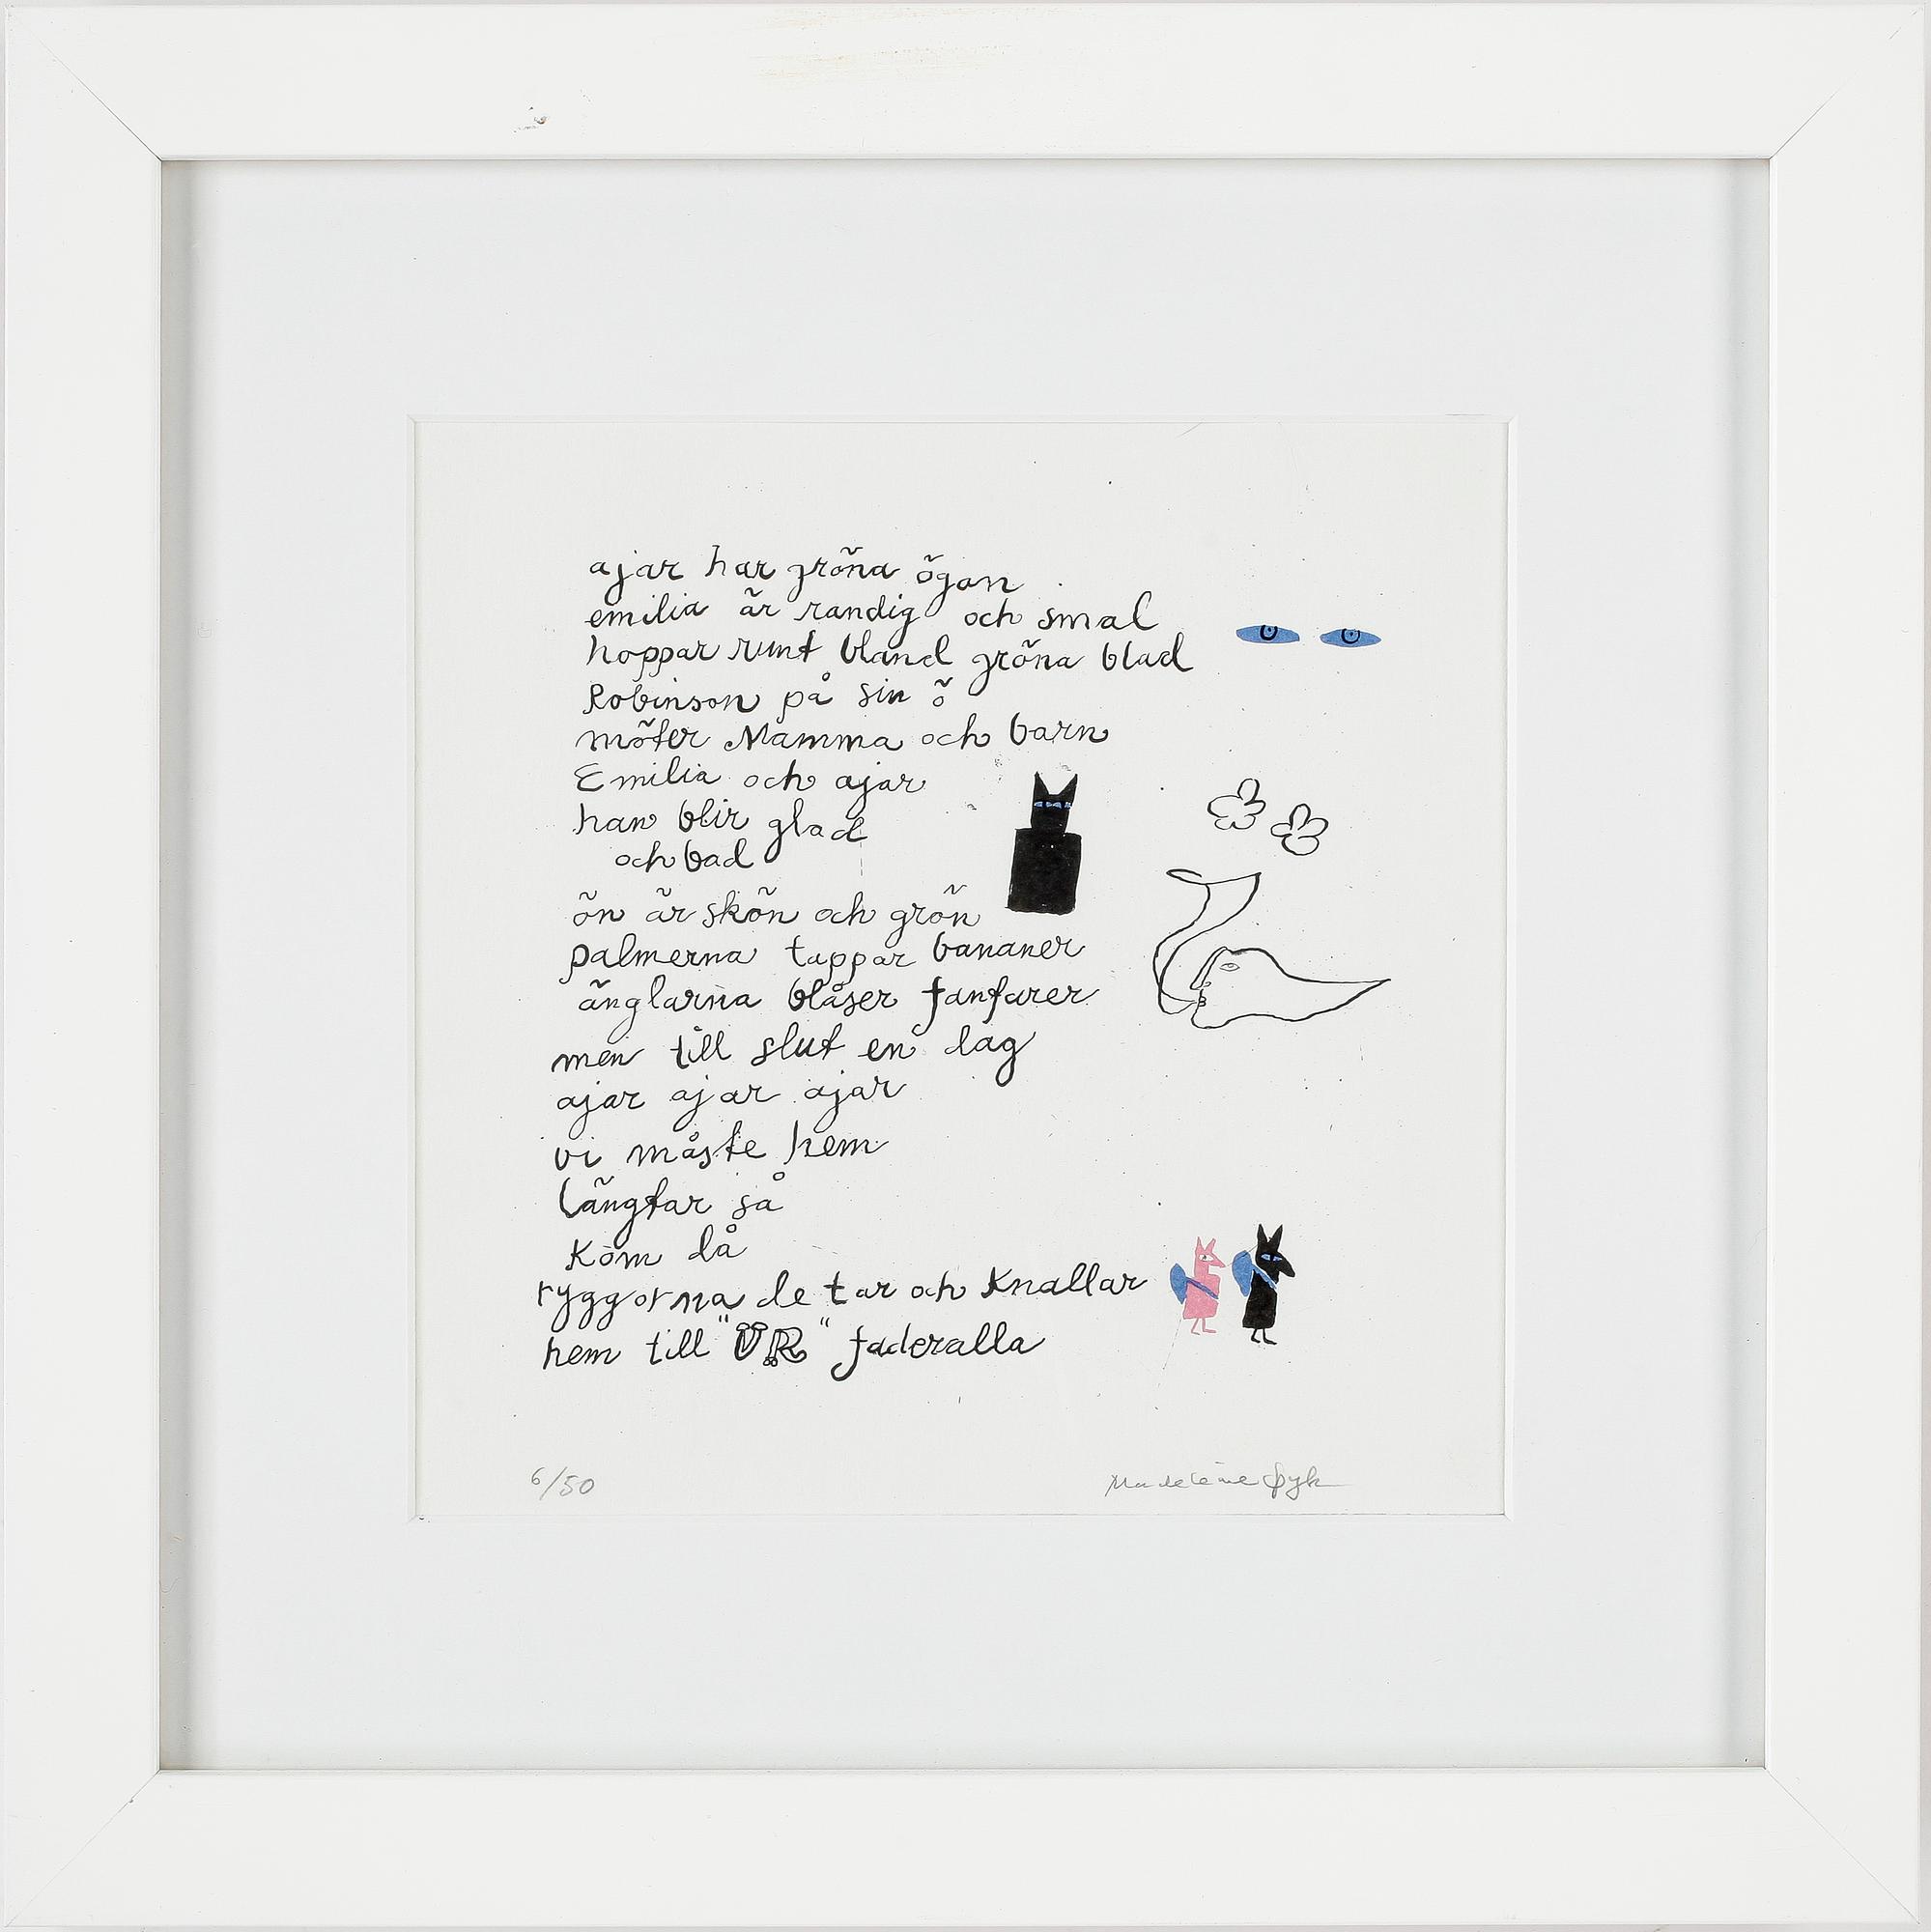 ajar har gröna ögon
emilia är randig och smal
hoppar runt bland gröna blad
Robinson på sin ö
möter Mamma och barn
Emilia och ajar
han blir glad
och bad
ön är skön och grön
palmerna tappar bananer
änglarna blåser fanfarer
men till slut en dag
ajar ajar ajar
vi måste hem
längtar så
Kom då
ryggorna de tar och Knallar
hem till "UR" faderalla
6/50 Madeleine Pyk